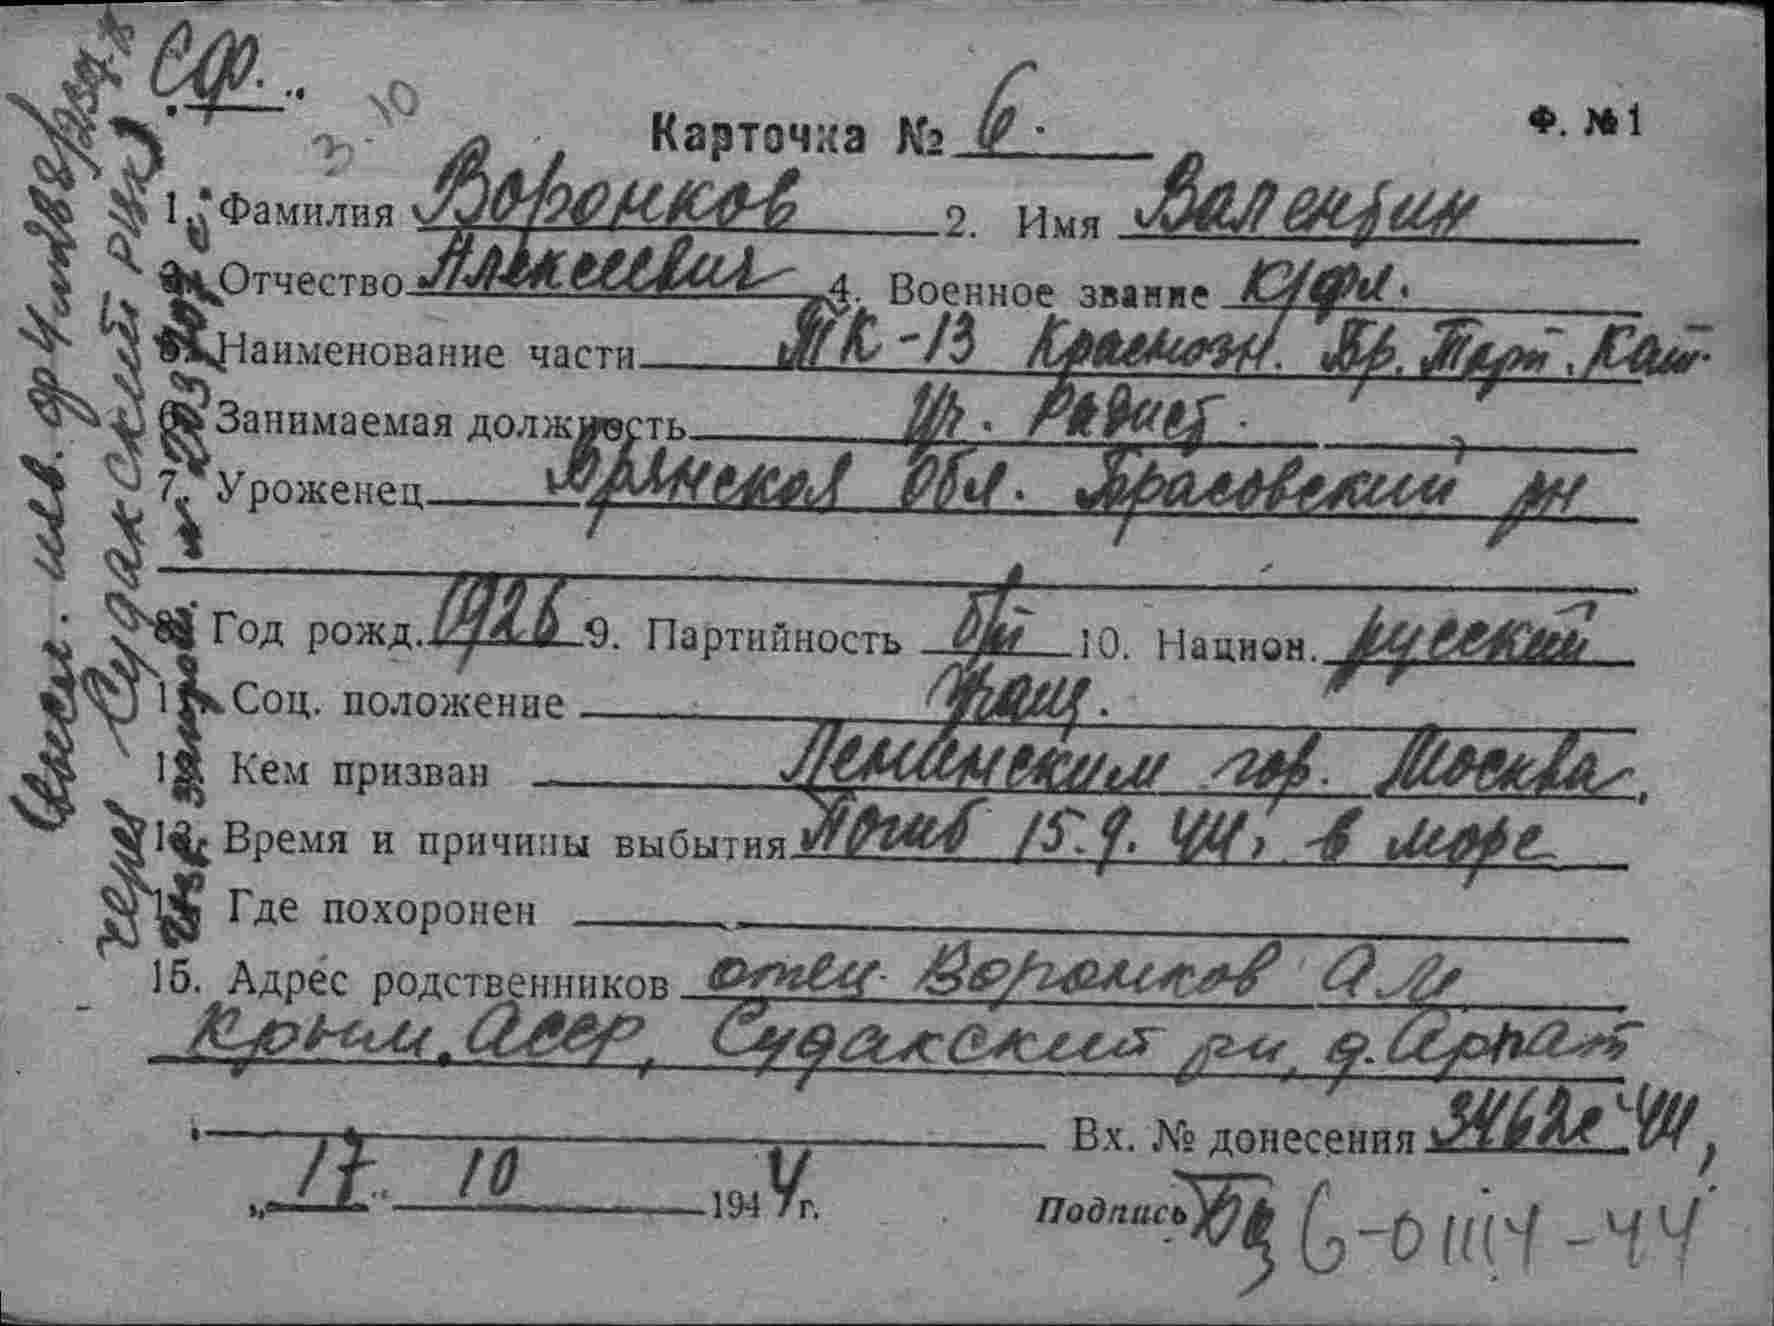 СФ.
3-10
Карточка № 6.
Ф. № 1
1. Фамилия Воронков 2. Имя Валентин
Отчество Алексеевич 4. Военное звание к/фл.
Наименование части ТК-13 Краснозн. Бр. Торп. Кат.
Занимаемая должность Радист.
7. Уроженец Брянская обл. Брасовский рн
8. Год рожд. 1926 9. Партийность б/п 10. Национ. русский
Соц. положение Учащ.
Кем призван Ленинским гор. Москва,
13. Время и причины выбытия Погиб 15.9.44г. в море
Где похоронен
15. Адрес родственников отец Воронков А М
Крым. АССР, Судакский рн, д. Арпат
Вх. № донесения 3462с 44,
„17" 10 1944г.
Подпись
6-01114-44
через Судакский РВК
Изв.